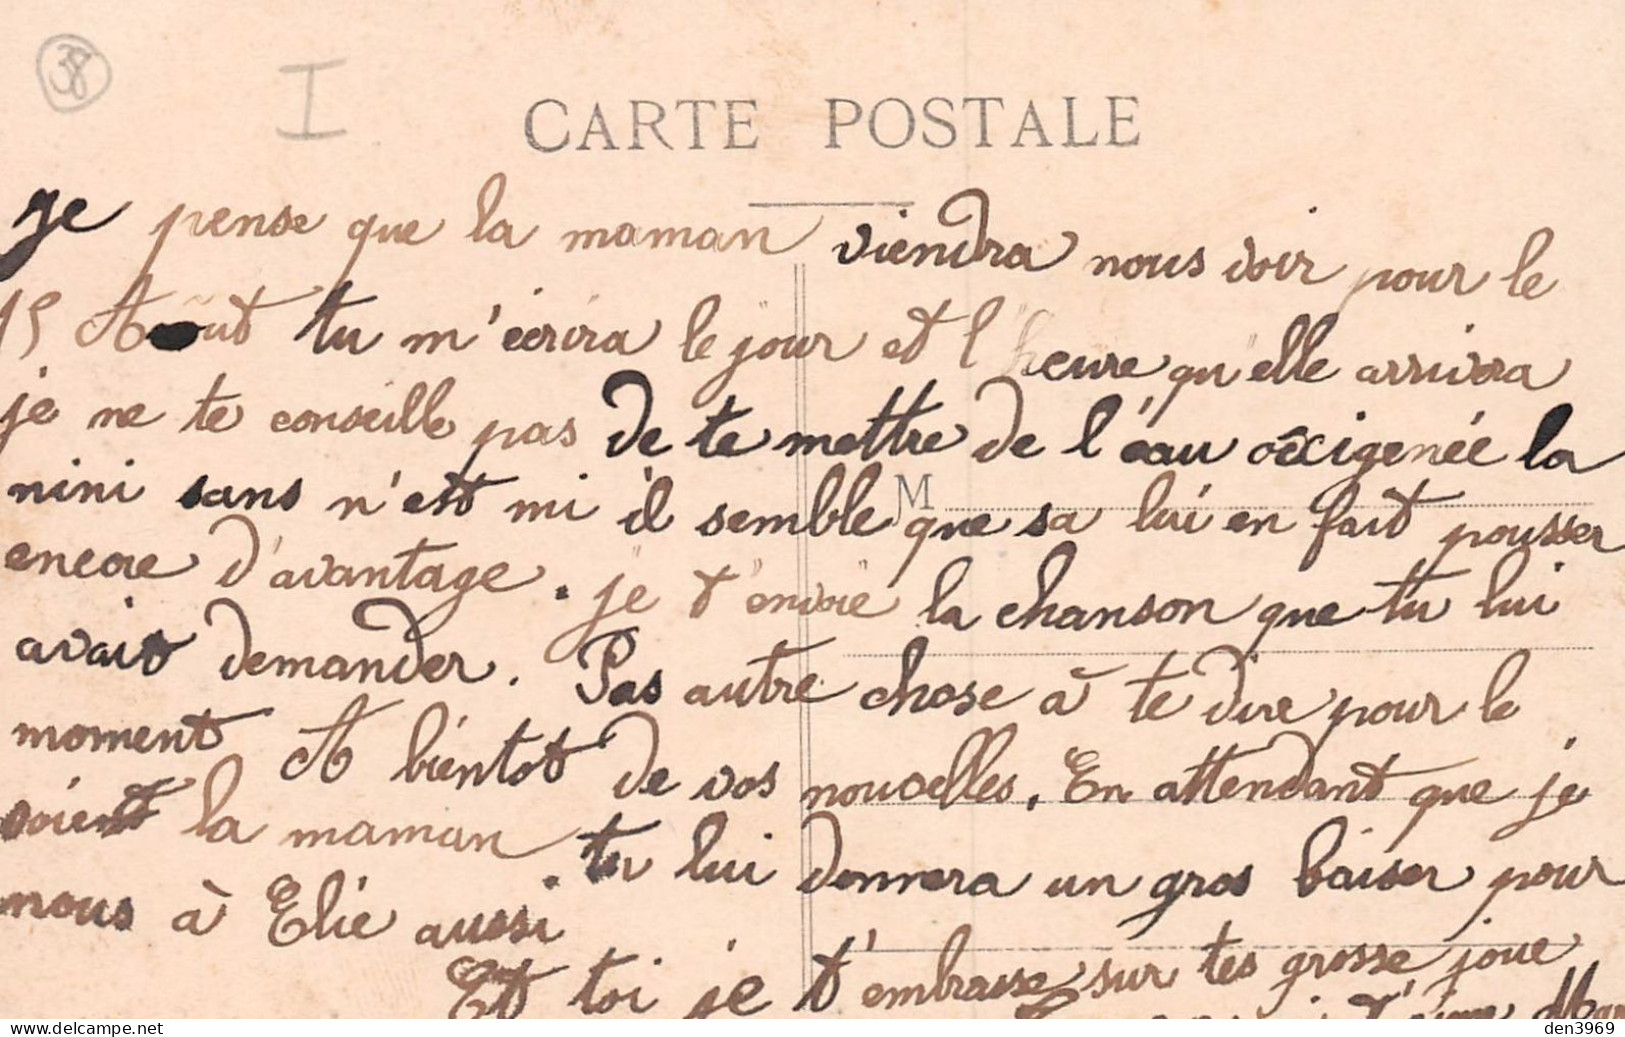 38
I
CARTE POSTALE
Je pense que la maman viendra nous voir pour le
15 Août tu m'écrira le jour et l'heure qu'elle arrivera
je ne te conseille pas de te mettre de l'éau oxigenée la
nini sans n'est mi il semble que sa lui en fait pousser
M
encore d'avantage. je t'envoie la chanson que tu lui
avait demander. Pas autre chose à te dire pour le
moment A bientot de vos nouvelles. En attendant que je
voient la maman. tu lui donnera un gros baiser pour
nous à Elie aussi
Et toi je t'embrasse sur tes grosse joue
www.delcampe.net
den3969